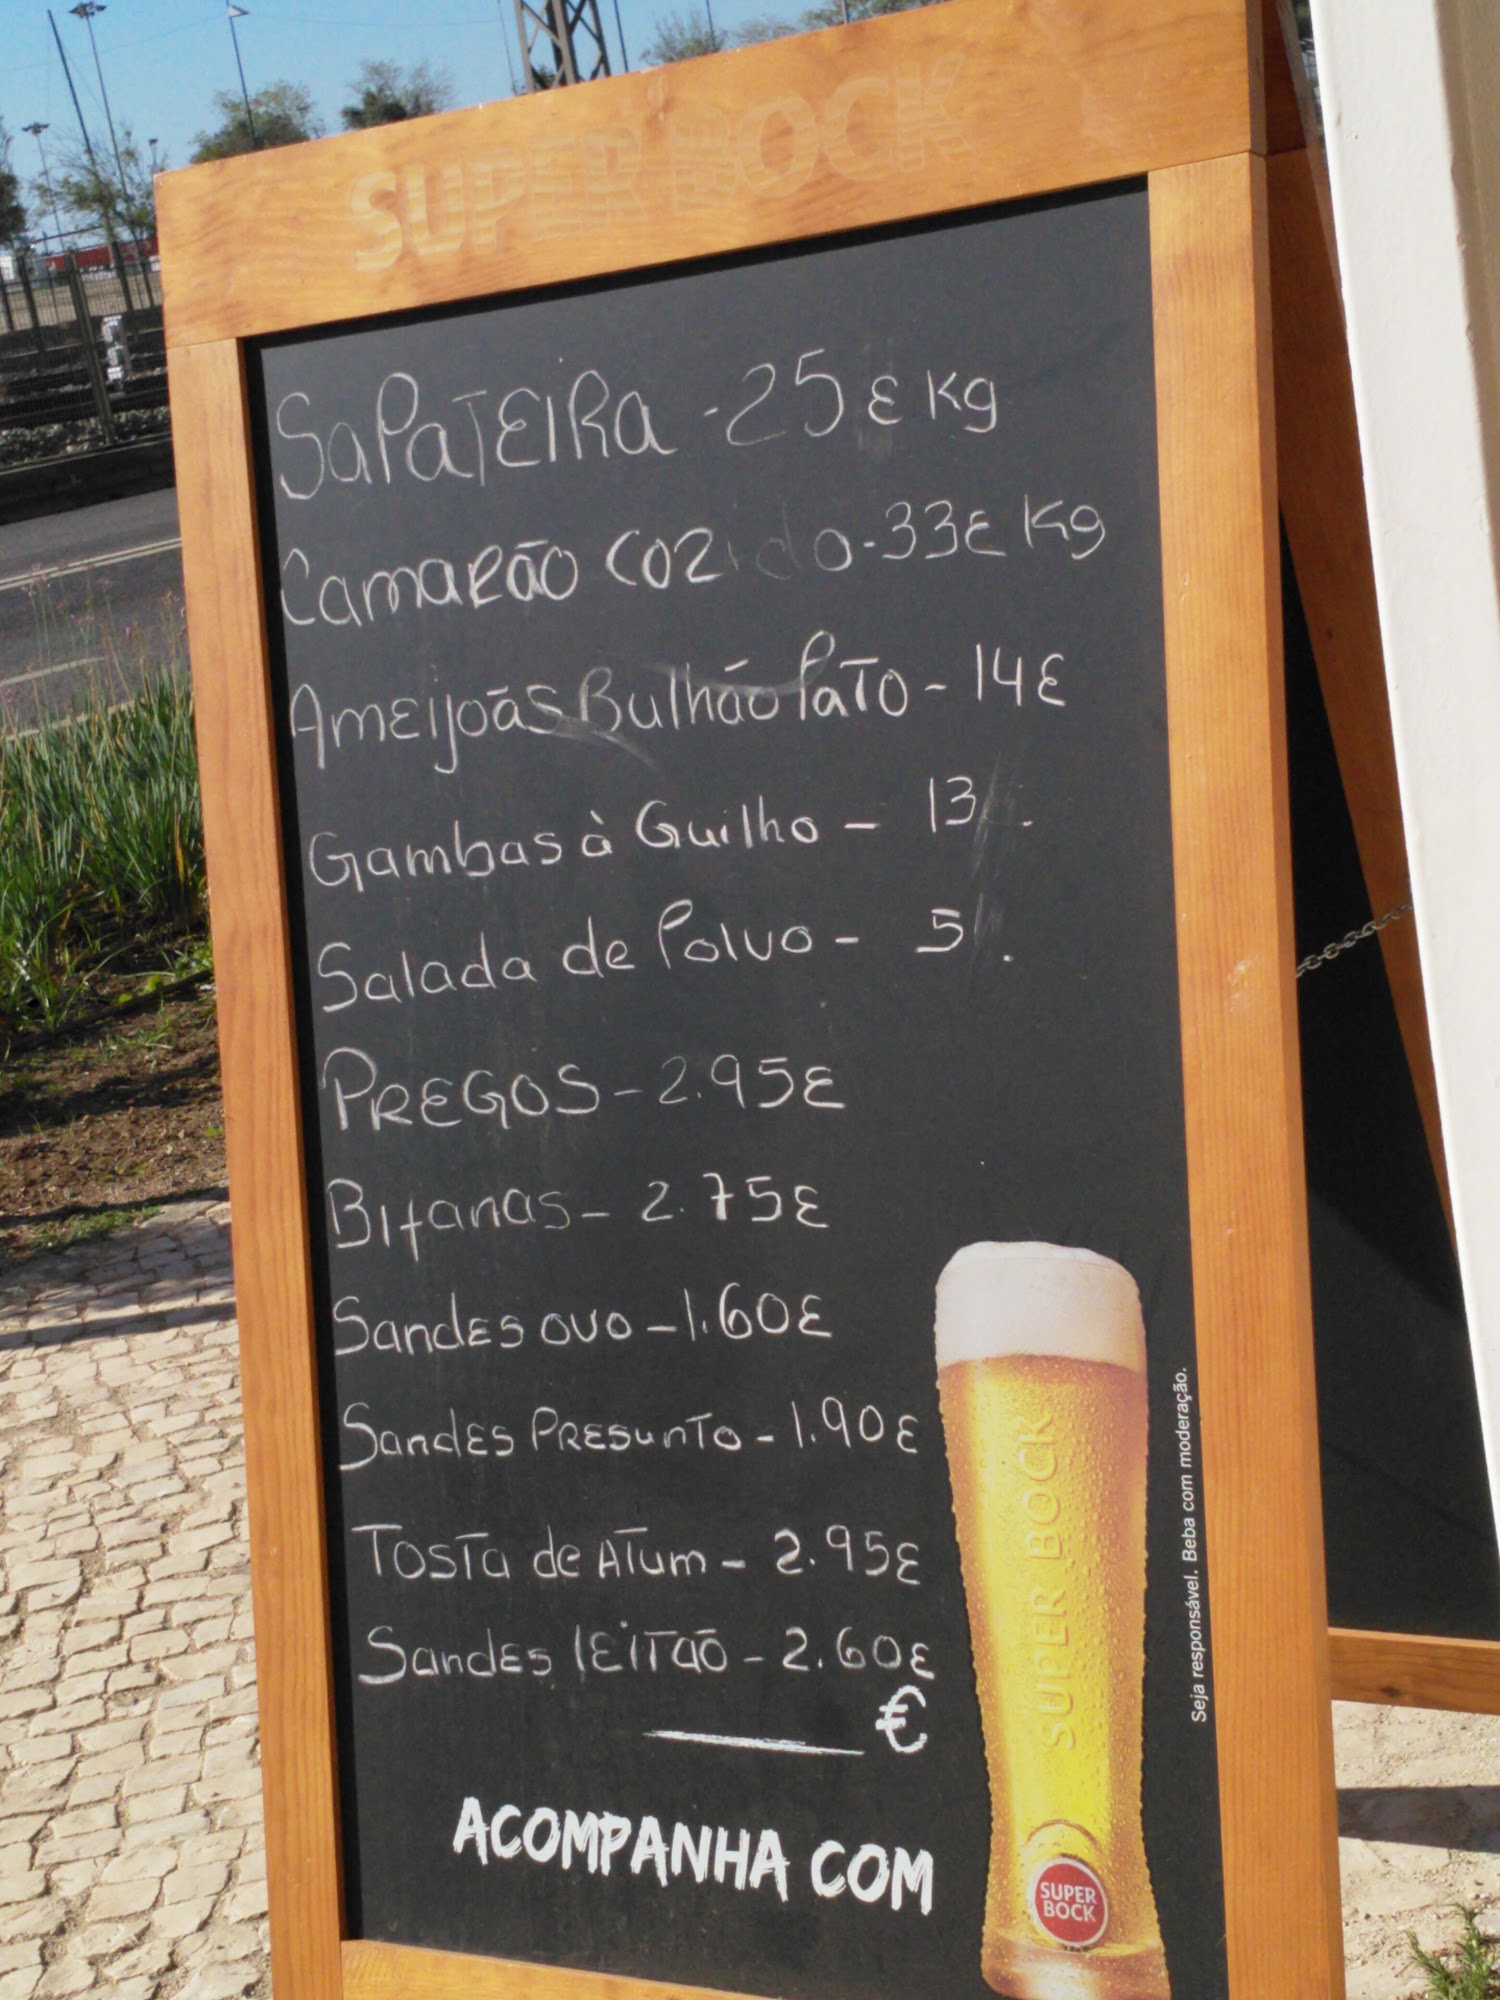 SUPER BOCK
SaPaTEIRa - 25 € Kg
CamaRão COZido - 33€ Kg
AmEijoãs Bulhão PaTo - 14€
Gambas à Guilho - 13 .
Salada de Polvo - 5 .
PREGOS - 2.95€
Bifanas - 2.75€
SandEs ovo - 1.60€
SandEs PRESunTo - 1.90€
TosTa de ATum - 2.95€
SandEs lEITão - 2.60€
€
ACOMPANHA COM
SUPER BOCK
SUPER
BOCK
Seja responsável. Beba com moderação.